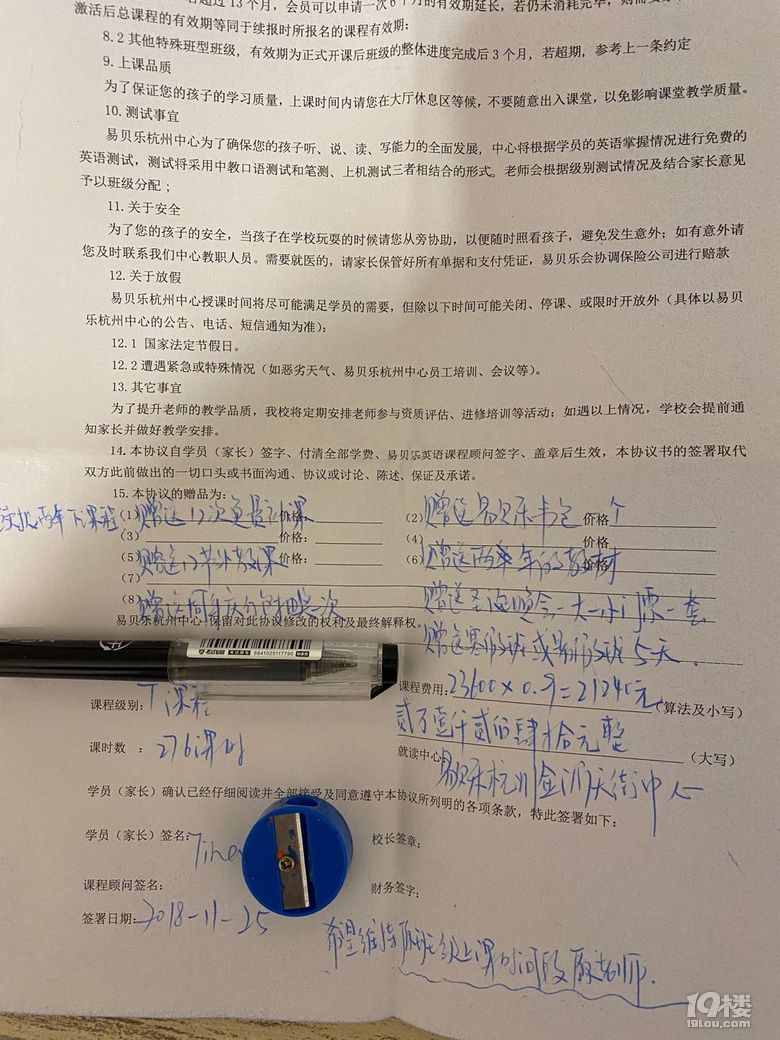 超过13个月，会员可以申请一次6个月的有效期延长，若仍未消耗完毕，则需要
激活后总课程的有效期等同于续报时所报名的课程有效期；
8.2 其他特殊班型班级，有效期为正式开课后班级的整体进度完成后 3 个月，若超期，参考上一条约定
9.上课品质
为了保证您的孩子的学习质量，上课时间内请您在大厅休息区等候，不要随意出入课堂，以免影响课堂教学质量。
10.测试事宜
易贝乐杭州中心为了确保您的孩子听、说、读、写能力的全面发展，中心将根据学员的英语掌握情况进行免费的
英语测试，测试将采用中教口语测试和笔测、上机测试三者相结合的形式。老师会根据级别测试情况及结合家长意见
予以班级分配；
11.关于安全
为了您的孩子的安全，当孩子在学校玩耍的时候请您从旁协助，以便随时照看孩子，避免发生意外；如有意外请
您及时联系我们中心教职人员。需要就医的，请家长保管好所有单据和支付凭证，易贝乐会协调保险公司进行赔款
12.关于放假
易贝乐杭州中心授课时间将尽可能满足学员的需要，但除以下时间可能关闭、停课、或限时开放外（具体以易贝
乐杭州中心的公告、电话、短信通知为准）：
12.1 国家法定节假日。
12.2 遭遇紧急或特殊情况（如恶劣天气、易贝乐杭州中心员工培训、会议等）。
13.其它事宜
为了提升老师的教学品质，我校将定期安排老师参与资质评估、进修培训等活动；如遇以上情况，学校会提前通
知家长并做好教学安排。
14.本协议自学员（家长）签字、付清全部学费、易贝乐英语课程顾问签字、盖章后生效，本协议书的签署取代
双方此前做出的一切口头或书面沟通、协议或讨论、陈述、保证及承诺。
15.本协议的赠品为：
两年T课程
（1）赠送12次免费 课 价格：
（2）赠送易贝乐书包一个 价格
（3） 价格：
（4） 价格
（5）赠送12节外教课 价格：
（6）赠送两年的教材 价格
（7）
（8）赠送周年庆 抽奖一次
赠送圣诞晚会一大一小门票一套
易贝乐杭州中心 保留对此协议修改的权利及最终解释权。
赠送寒假班或暑假班5天.
6941025117790
课程级别：T课程
课程费用：23600×0.9=21240元（算法及小写）
贰万壹仟贰佰肆拾元整（大写）
课时数 ：276课时
就读中心：易贝乐杭州金沙天街中心
学员（家长）确认已经仔细阅读并全部接受及同意遵守本协议所列明的各项条款，特此签署如下：
学员（家长）签名：Tina
校长签章：
课程顾问签名：
财务签字：
签署日期：2018-11-25
希望维持原班级上课时间段及原老师.
19楼
19lou.com